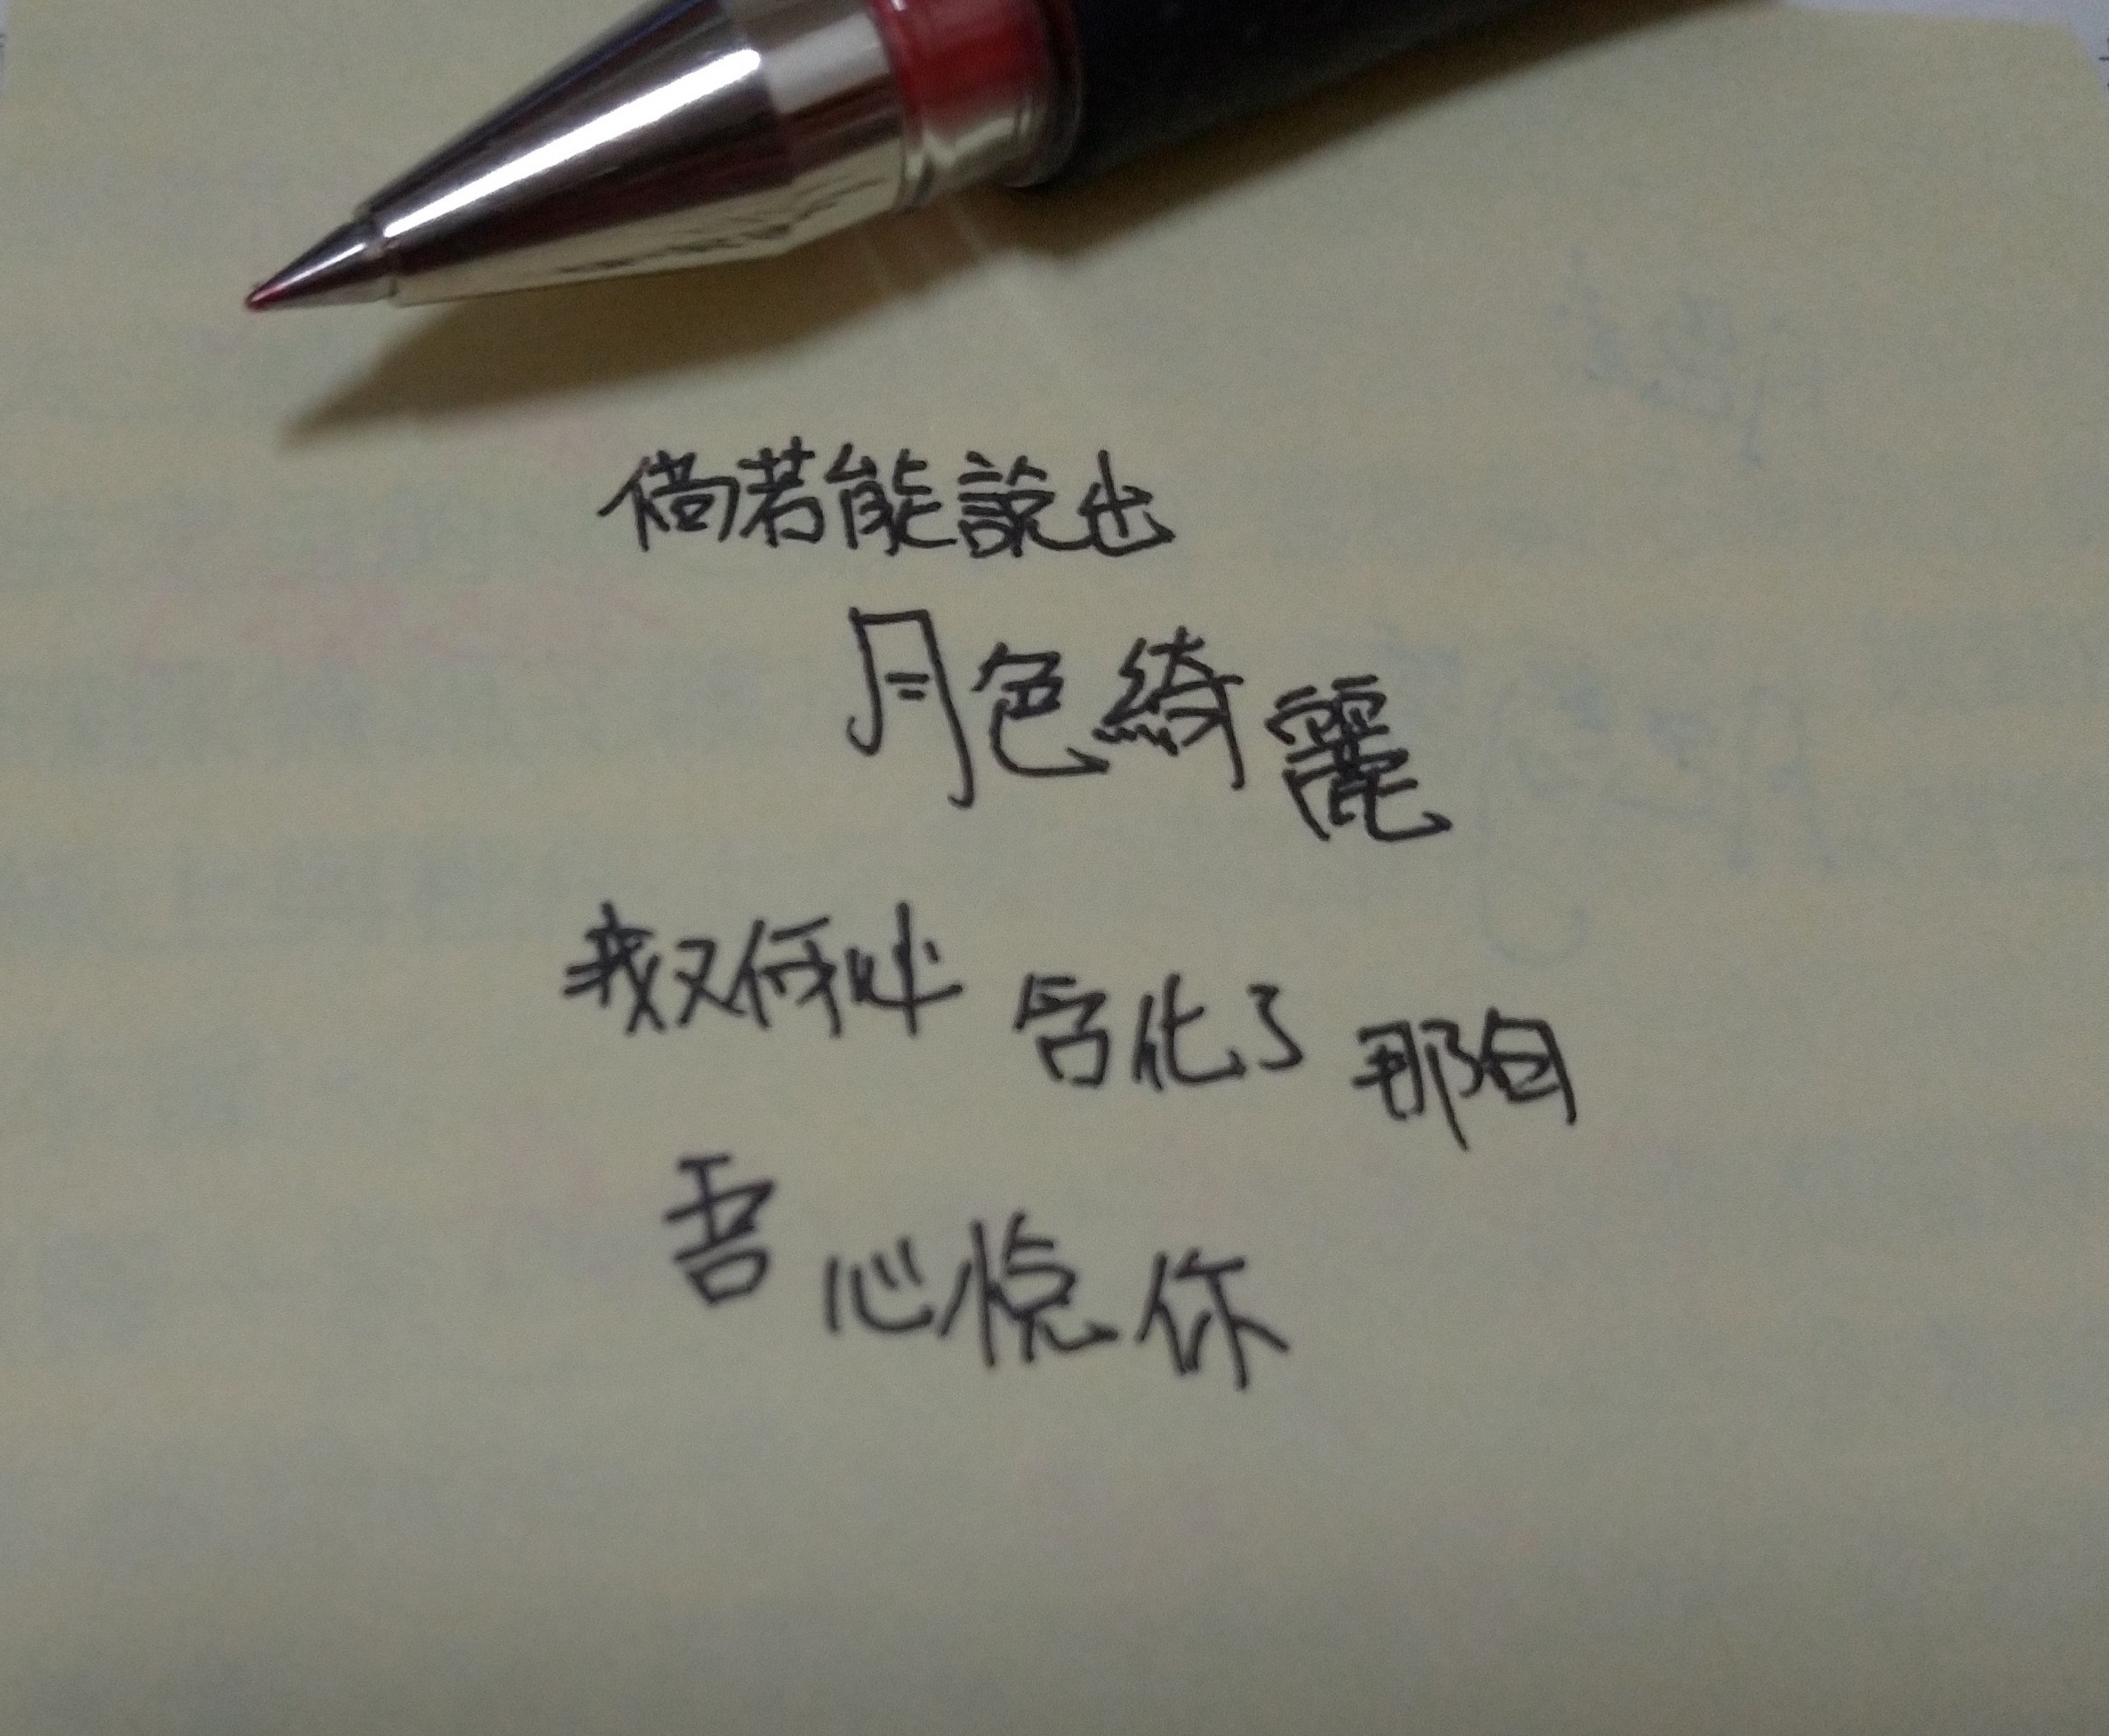 倘若能說出
月色綺麗
我又何必含化了那句
吾心悅你